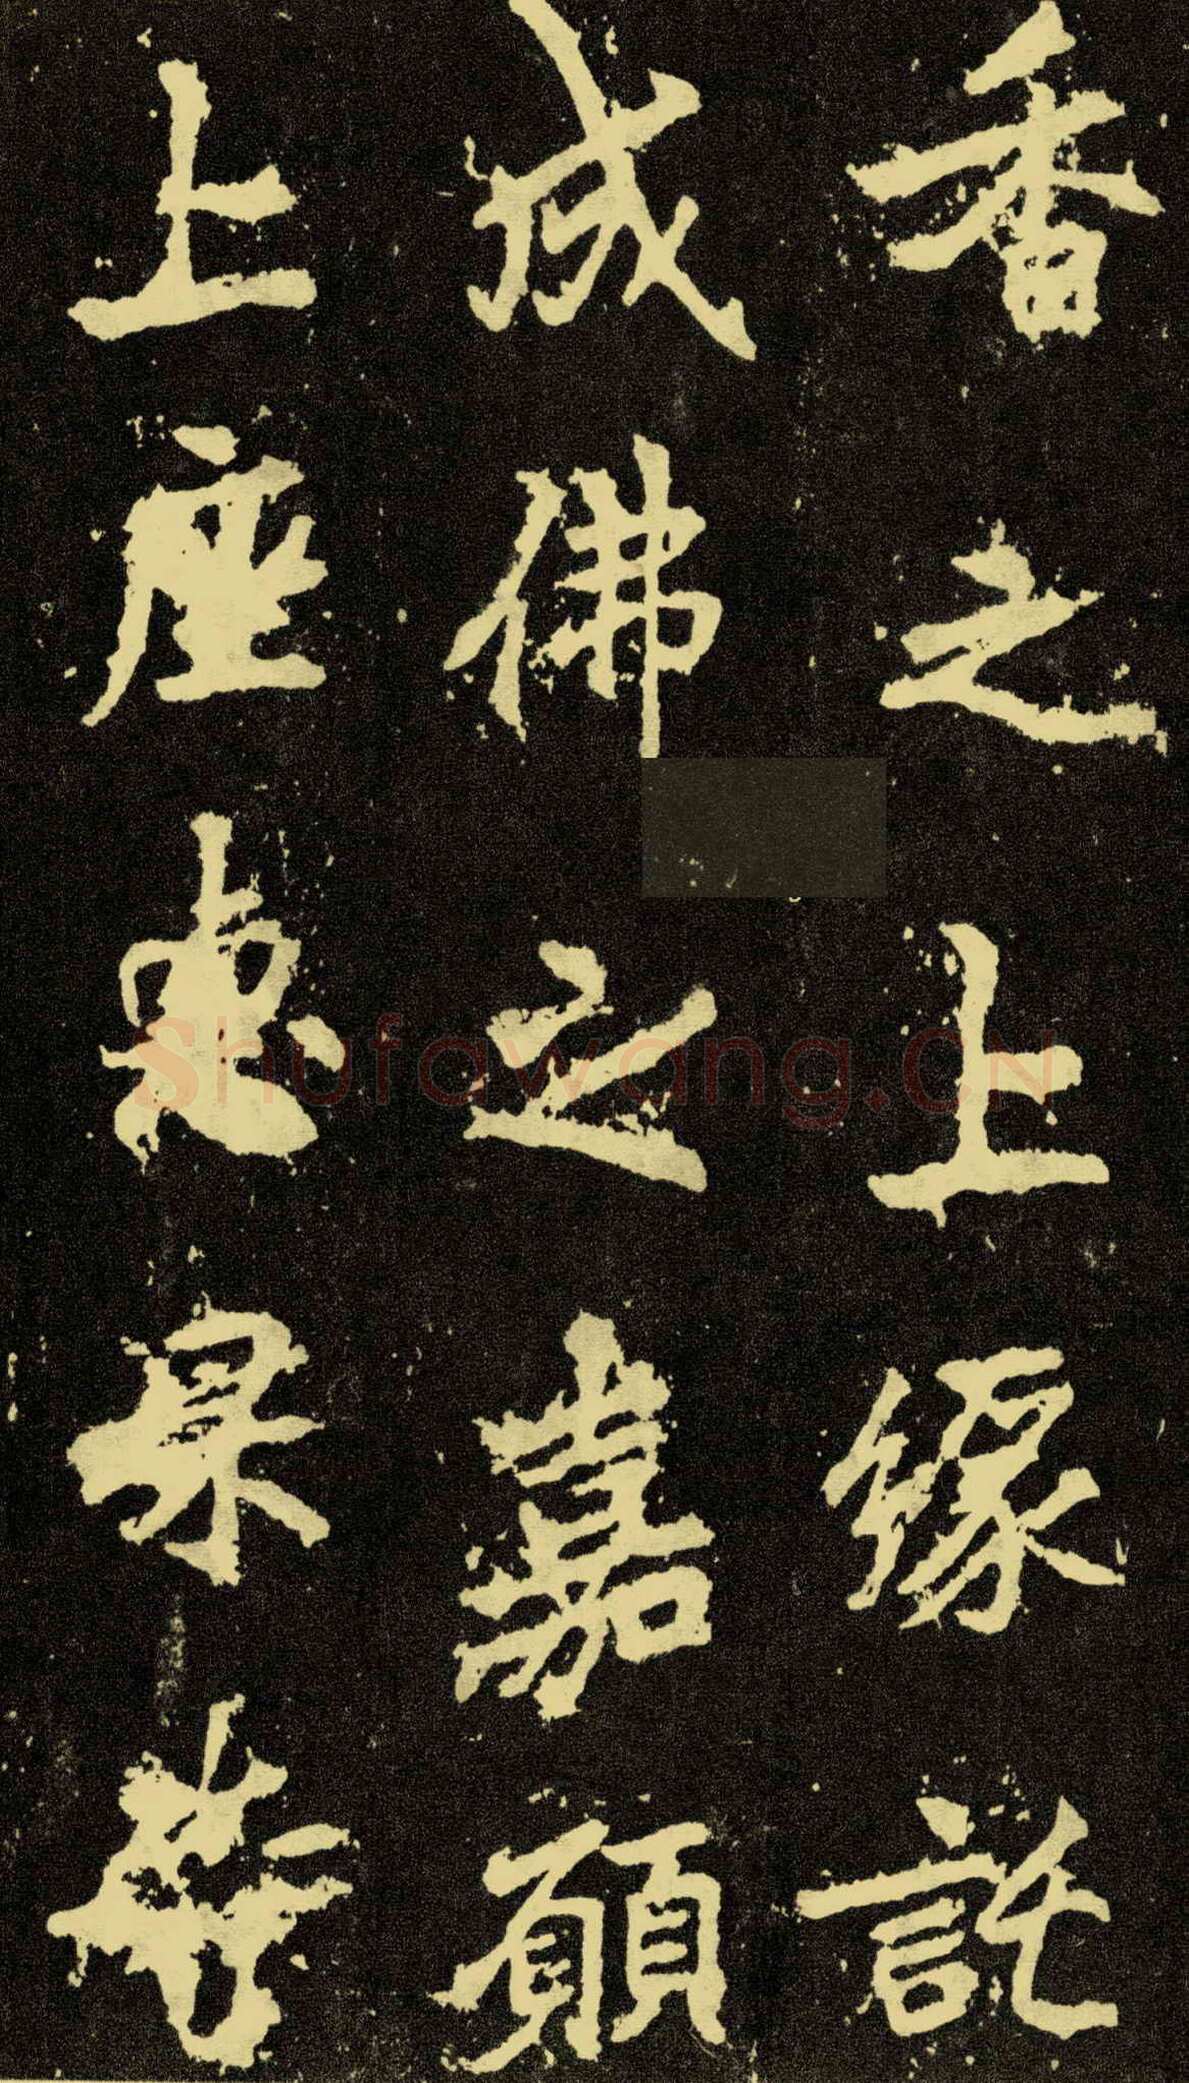 香之上缘託
成佛之嘉願
上座惠杲寺
Shufawang.CN